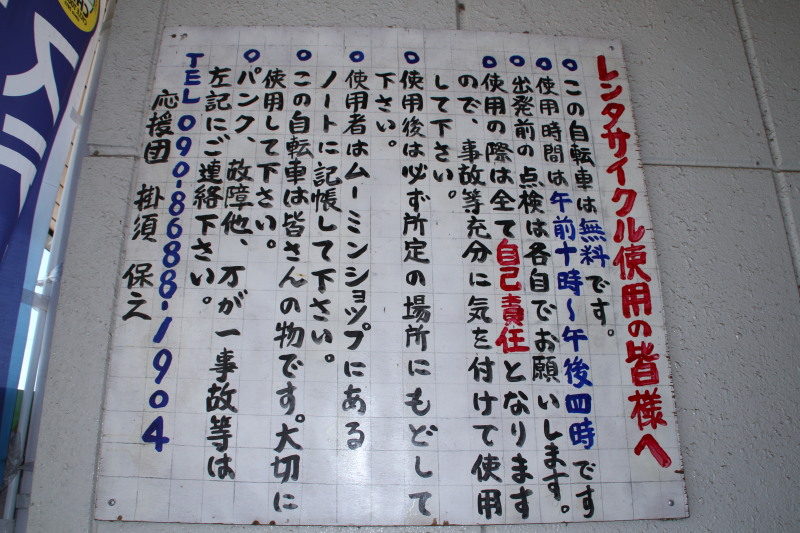 レンタサイクル使用の皆様へ
○この自転車は無料です。
○使用時間は午前十時～午後四時です
○出発前の点検は各自でお願いします。
○使用の際は全て自己責任となります
ので、事故等充分に気を付けて使用
して下さい。
○使用後は必ず所定の場所にもどして
下さい。
○使用者はムーミンショップにある
ノートに記帳して下さい。
○この自転車は皆さんの物です。大切に
使用して下さい。
○パンク、故障他、万が一事故等は
左記にご連絡下さい。
TEL 090-8688-1904
応援団 掛須 保之